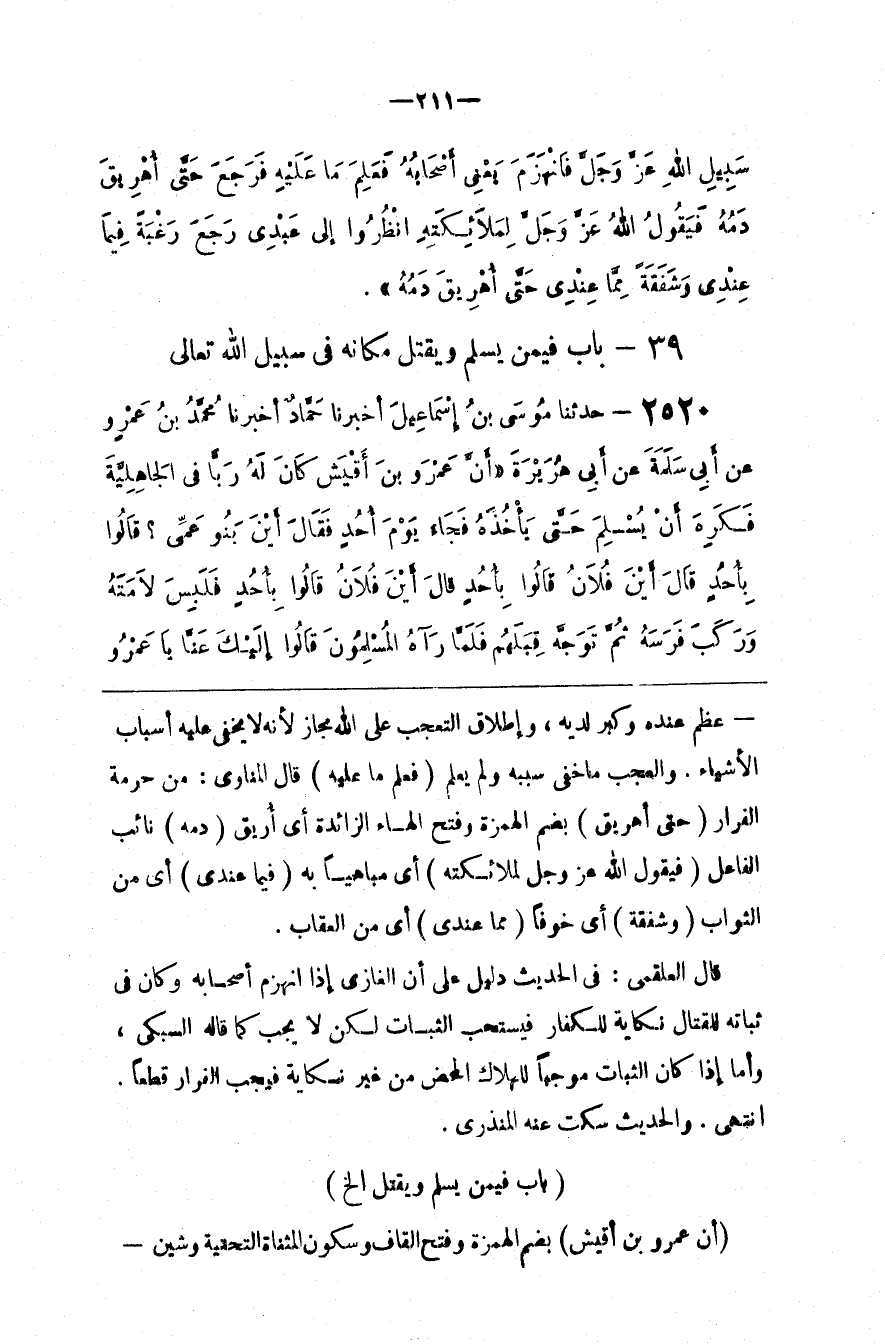 —٢١١—
سَبِيلِ اللهِ عَزَّ وَجَلَّ فَانْهَزَمَ يَعْنِى أَصْحَابُهُ فَعَلِمَ مَا عَلَيْهِ فَرَجَعَ حَتَّى أُهْرِيقَ
دَمُهُ فَيَقُولُ اللهُ عَزَّ وَجَلَّ لِمَلاَئِكَتِهِ انْظُرُوا إلى عَبْدِى رَجَعَ رَغْبَةً فِيمَا
عِنْدِى وَشَفَقَةً مِمَّا عِنْدِى حَتَّى أُهْرِيقَ دَمُهُ » .
٣٩ – باب فيمن يسلم ويقتل مكانه فى سبيل الله تعالى
٢٥٢٠ – حدثنا مُوسَى بنُ إِسْمَاعِيلَ أخبرنا حَمَّادٌ أخبرنا مُحَمَّدُ بنُ عَمْرٍو
عن أَبِى سَلَمَةَ عن أَبِى هُرَيْرَةَ «أَنَّ عَمْرَو بنَ أُقَيْشٍ كَانَ لَهُ رِبًا فى الْجَاهِلِيَّةِ
فَكَرِهَ أَنْ يُسْلِمَ حَتَّى يَأْخُذَهُ فَجَاءَ يَوْمَ أُحُدٍ فَقَالَ أَيْنَ بَنُو عَمِّى ؟ قَالُوا
بِأُحُدٍ قَالَ أَيْنَ فُلاَنٌ قَالُوا بِأُحُدٍ قالَ أَيْنَ فُلاَنٌ قَالُوا بِأُحُدٍ فَلَبِسَ لأْمَتَهُ
وَرَكَبَ فَرَسَهُ ثُمَّ تَوَجَّهَ قِبَلَهُمْ فَلَمَّا رَآهُ الْمُسْلِمُونَ قَالُوا إِلَيْكَ عَنَّا يَا عَمْرُو
— عظم عنده وكبر لديه ، وإطلاق التعجب على الله مجاز لأنه لا يخفى عليه أسباب
الأشياء . والعجب ما خفى سببه ولم يعلم ( فعلم ما عليه ) قال المناوى : من حرمة
الفرار ( حتى أهريق ) بضم الهمزة وفتح الهاء الزائدة أى أُريق ( دمه ) نائب
الفاعل ( فيقول الله عز وجل لملائكته ) أى مباهياً به ( فيما عندى ) أى من
الثواب ( وشفقة ) أى خوفاً ( مما عندى ) أى من العقاب .
قال العلقمى : فى الحديث دليل على أن الغازى إذا انهزم أصحابه وكان فى
ثباته للقتال نكاية للكفار فيستحب الثبات لكن لا يجب كما قاله السبكى ،
وأما إذا كان الثبات موجباً للهلاك المحض من غير نكاية فيجب الفرار قطعاً .
انتهى . والحديث سكت عنه المنذرى .
( باب فيمن يسلم ويقتل الخ )
(أن عمرو بن أقيش) بضم الهمزة وفتح القاف وسكون المثناة التحتية وشين —